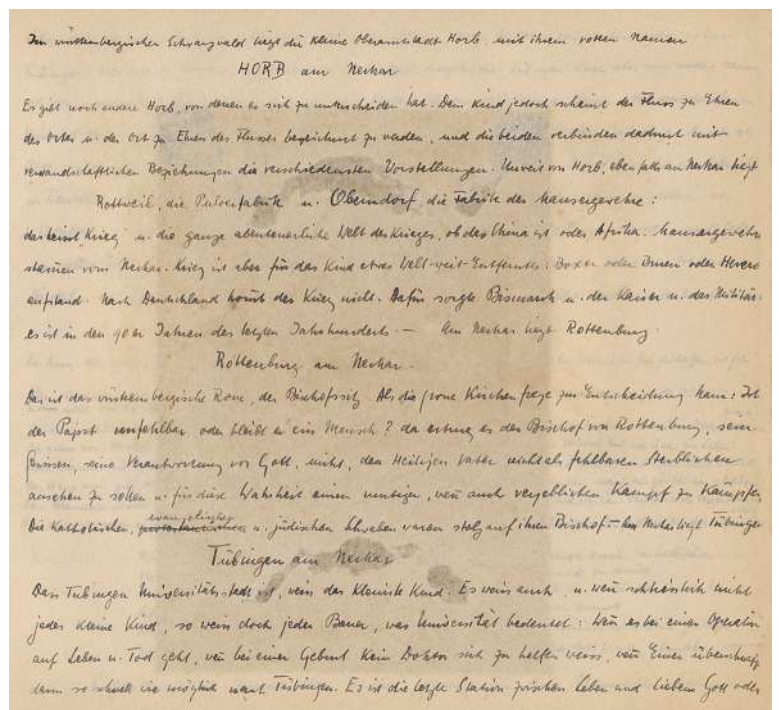 Im württembergischen Schwarzwald liegt die kleine Oberamtsstadt Horb, mit ihrem vollen Namen
HORB am Neckar
Es gibt noch andere Horb, von denen es sich zu unterscheiden hat. Dem Kind jedoch scheint der Fluss zu Ehren
des Ortes u. der Ort zu Ehren des Flusses bezeichnet zu werden, und die beiden verbinden dadurch mit
verwandschaftlichen Beziehungen die verschiedensten Vorstellungen. Unweit von Horb, ebenfalls am Neckar liegt
Rottweil, die Pulverfabrik u. Oberndorf, die Fabrik der Mausergewehre:
das heisst Krieg u. die ganze abenteuerliche Welt des Krieges, ob das China ist oder Afrika. Mausergewehre
stammen vom Neckar. Krieg ist aber für das Kind etwas Welt-weit-Entferntes: Boxer oder Buren oder Herero
aufstand. Nach Deutschland kommt der Krieg nicht. Dafür sorgte Bismarck u. der Kaiser u. das Militär.
es ist in den 90er Jahren des letzten Jahrhunderts. — Am Neckar liegt Rottenburg.
Rottenburg am Neckar.
Das ist das württembergische Rom, der Bischofssitz. Als die grosse Kirchenfrage zur Entscheidung kam: Ist
der Papst unfehlbar, oder bleibt er ein Mensch? da ertrug es der Bischof von Rottenburg, sein
Gewissen, seine Verantwortung vor Gott, nicht, den Heiligen Vater nicht als fehlbaren Sterblichen
ansehen zu sollen u. für diese Wahrheit einen mutigen, wenn auch vergeblichen Kampf zu kämpfen
Die katholischen, evangelischen u. jüdischen Schwaben waren stolz auf ihren Bischof. — Am Neckar liegt Tübingen
Tübingen am Neckar
Dass Tübingen Universitätsstadt ist, weiss das kleinste Kind. Es weiss auch, u. wenn schliesslich nicht
jedes kleine Kind, so weiss doch jeder Bauer, was Universität bedeutet: Wenn es bei einer Operation
auf Leben u. Tod geht, wenn bei einer Geburt kein Doktor sich zu helfen weiss, wenn Einer
dann so schnell wie möglich nach Tübingen. Es ist die letzte Station zwischen Leben und liebem Gott oder